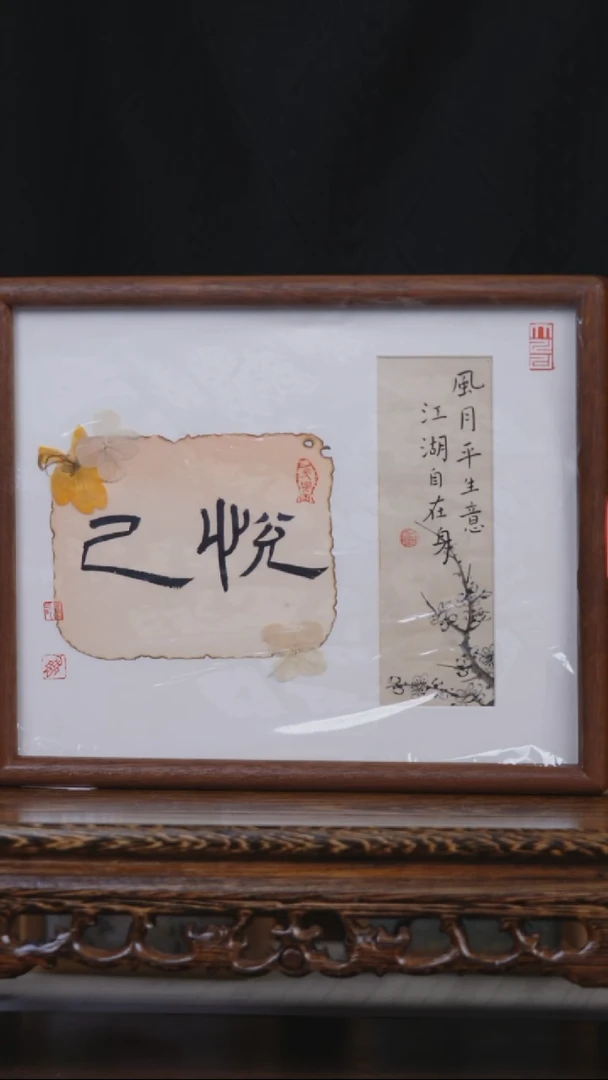 風月平生意
江湖自在身
悅己